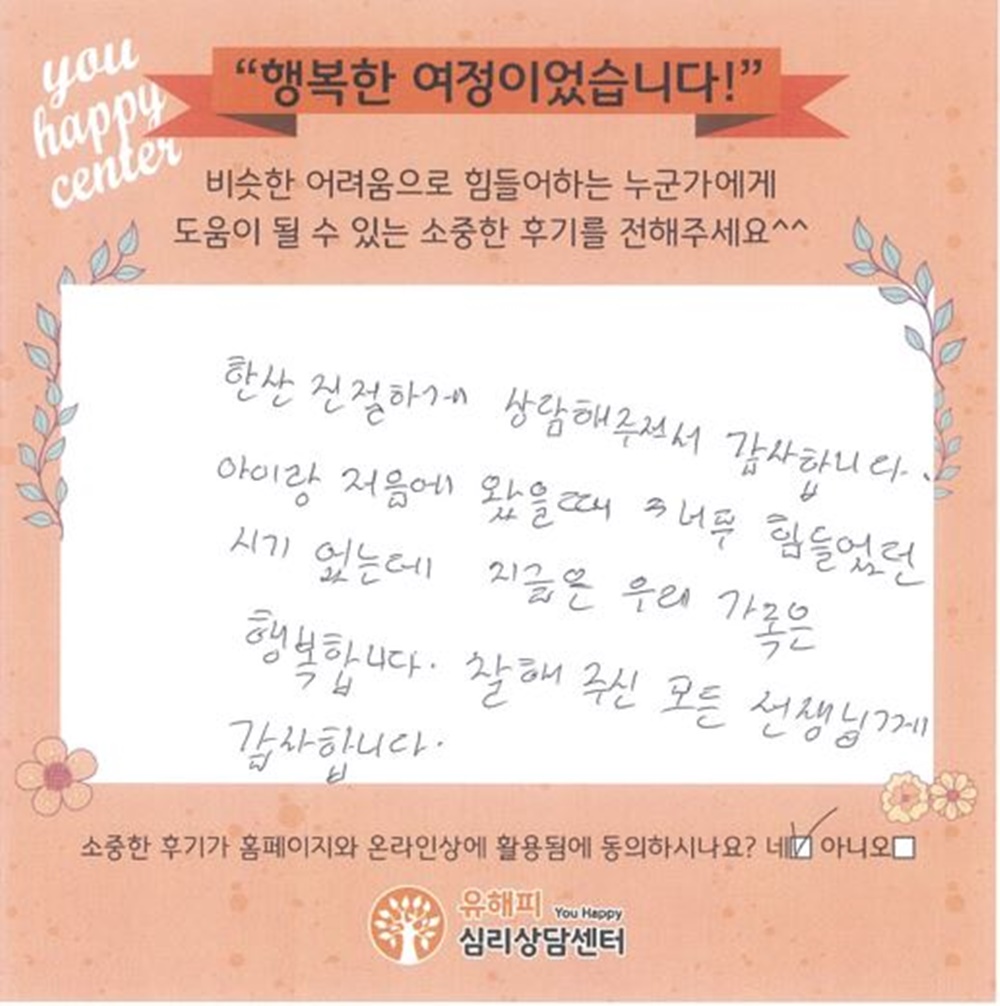 you
happy
center
“행복한 여정이었습니다!”
비슷한 어려움으로 힘들어하는 누군가에게
도움이 될 수 있는 소중한 후기를 전해주세요^^
한산 진절하게 상람해주셔서 감사합니다.
아이랑 저음에 왔을때 너무 힘들었던
시기 었는데 지금은 우리 가족은
행복합니다. 잘해 주신 모든 선생님께
감사합니다.
소중한 후기가 홈페이지와 온라인상에 활용됨에 동의하시나요? 네 아니오
유해피 You Happy
심리상담센터